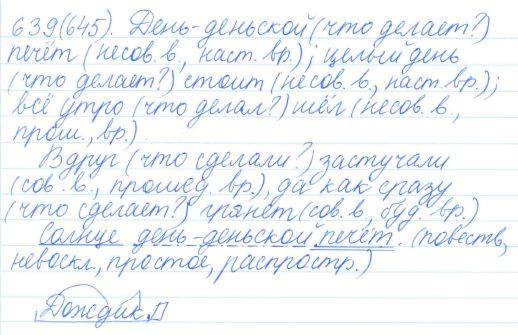 639(645). День-деньской (что делает?)
печёт (несов. в., наст. вр.); целый день
(что делает?) стоит (несов. в., наст. вр.);
всё утро (что делал?) шёл (несов. в.,
прош., вр.).
Вдруг (что сделали?) застучали
(сов. в., прошед. вр.), да как сразу
(что сделает?) грянет (сов. в, буд. вр.)
Солнце день-деньской печёт. (повеств,
невоскл., простое, распростр.)
Дождик